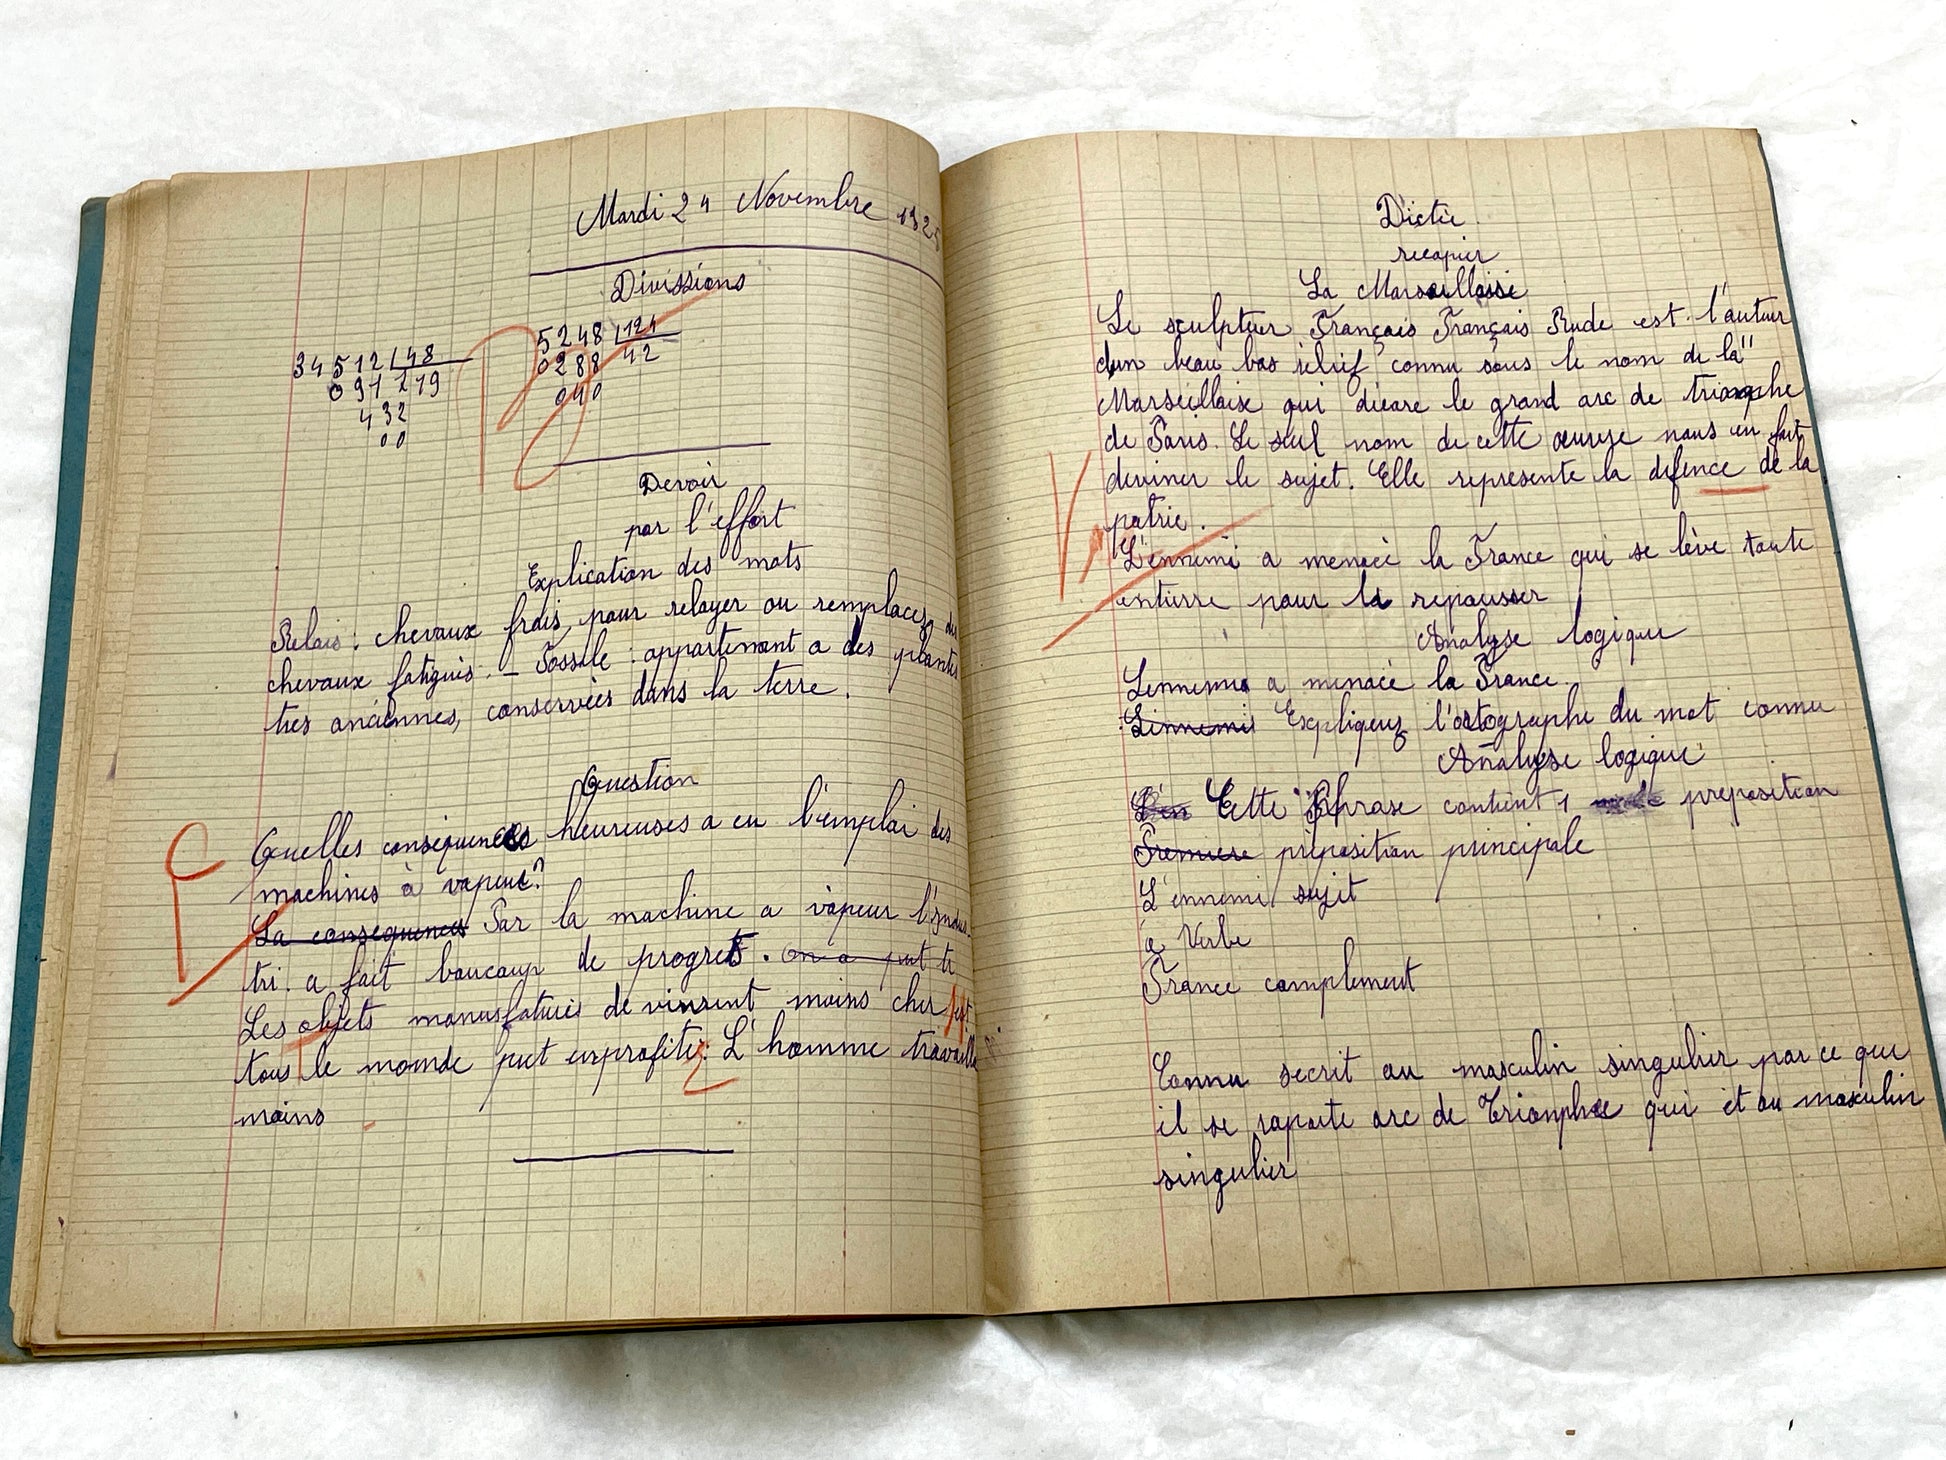 Mardi 24 Novembre 192
Divissions
34512 48
0 91 719
432
00
5248 124
0288 42
040
Devoir
par l'effort
Explication des mots
Relais : chevaux frais, pour relayer ou remplacez des
chevaux fatigués. – Fossile : appartenant a des plantes
tres anciennes, conservées dans la terre.
Question
Quelles conséquences heureuses a eu l'emploi des
machines à vapeur?
La consequences Par la machine a vapeur l'indus
tri. a fait baucoup de progrets. on a put te
Les objets manusfaturés devinrent moins cher
tous le monde put enprofiter. L'homme travaille
moins
Dictée
recopier
La Marseillaise
Le sculpteur Français François Rude est l'auteur
d'un beau bas relief connu sous le nom de la"
Marseillaise qui décore le grand arc de triomphe
de Paris. Le seul nom de cette œuvre nous en fait
deviner le sujet. Elle represente la defence de la
patrie.
L'ennemi a menacé la France qui se lève toute
entierre pour la repousser
Analyse logique
Lennemi a menacé la France.
Linnemi Expliquez l'ortographe du mot connu
Analyse logique
L'en Cette phrase contient 1 preposition
Premiere préposition principale
L'ennemi sujet
a Verbe
France complement
Connu secrit au masculin singulier par ce que
il se raporte arc de Trionphe qui et au masculin
singulier